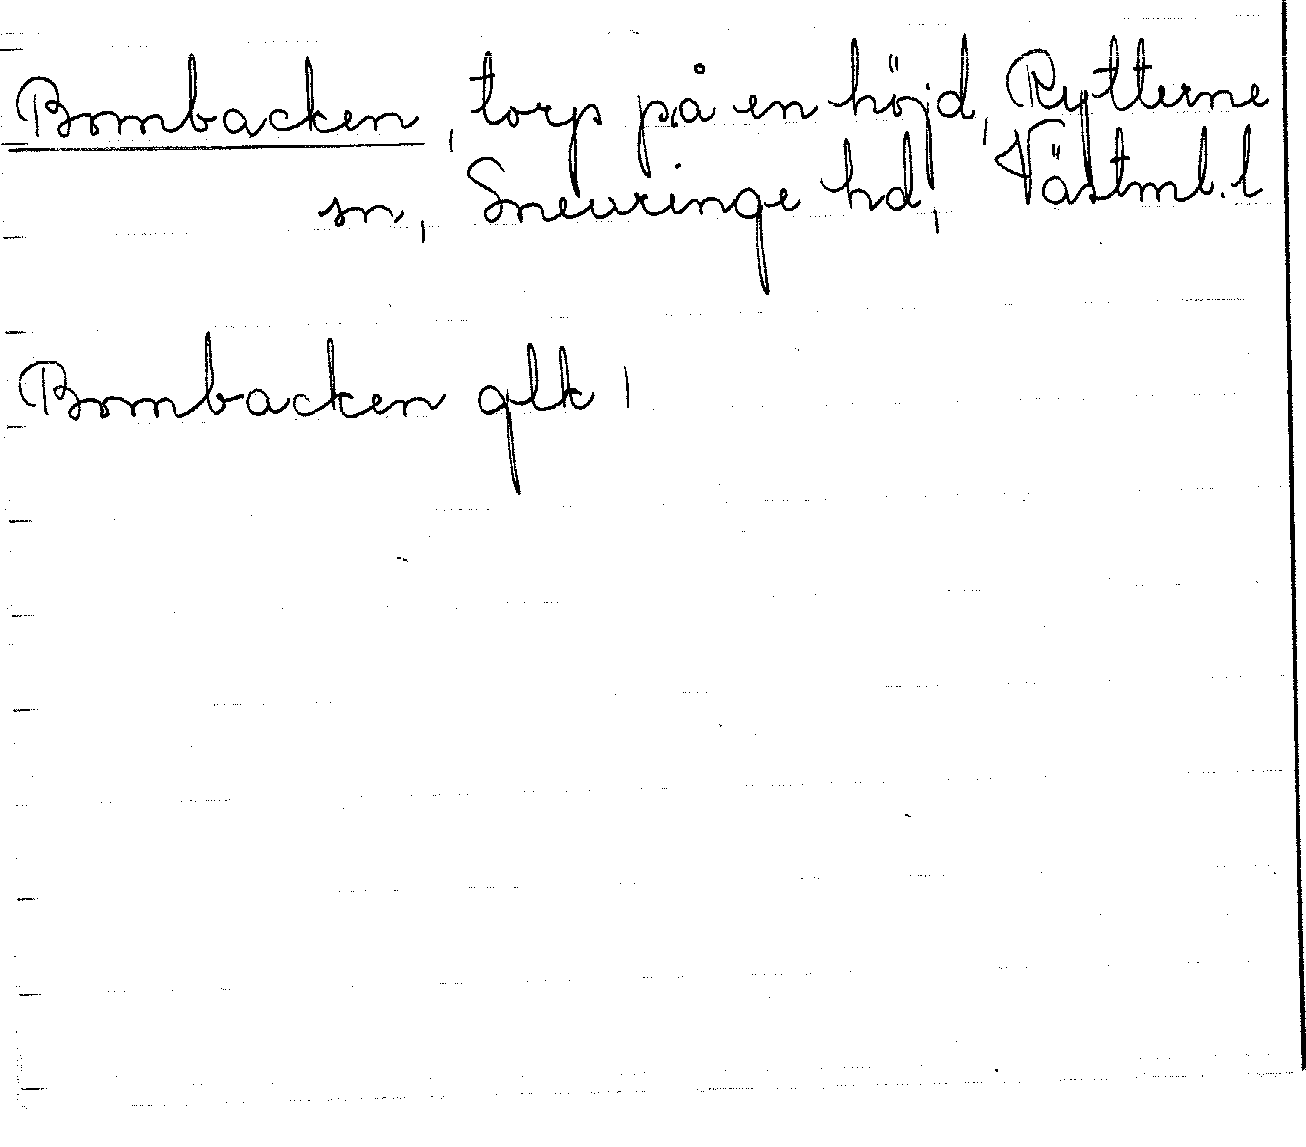 Bombacken, torp på en höjd, Rytterne
sn, Snevringe hd, Västml. l
Bombacken glk 1